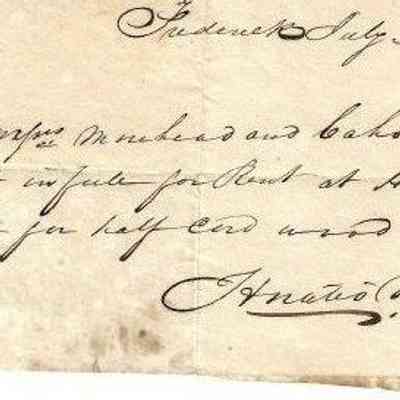 Frederick July
Morehead and
in full for Rent at
for half Cord wood
Horatio